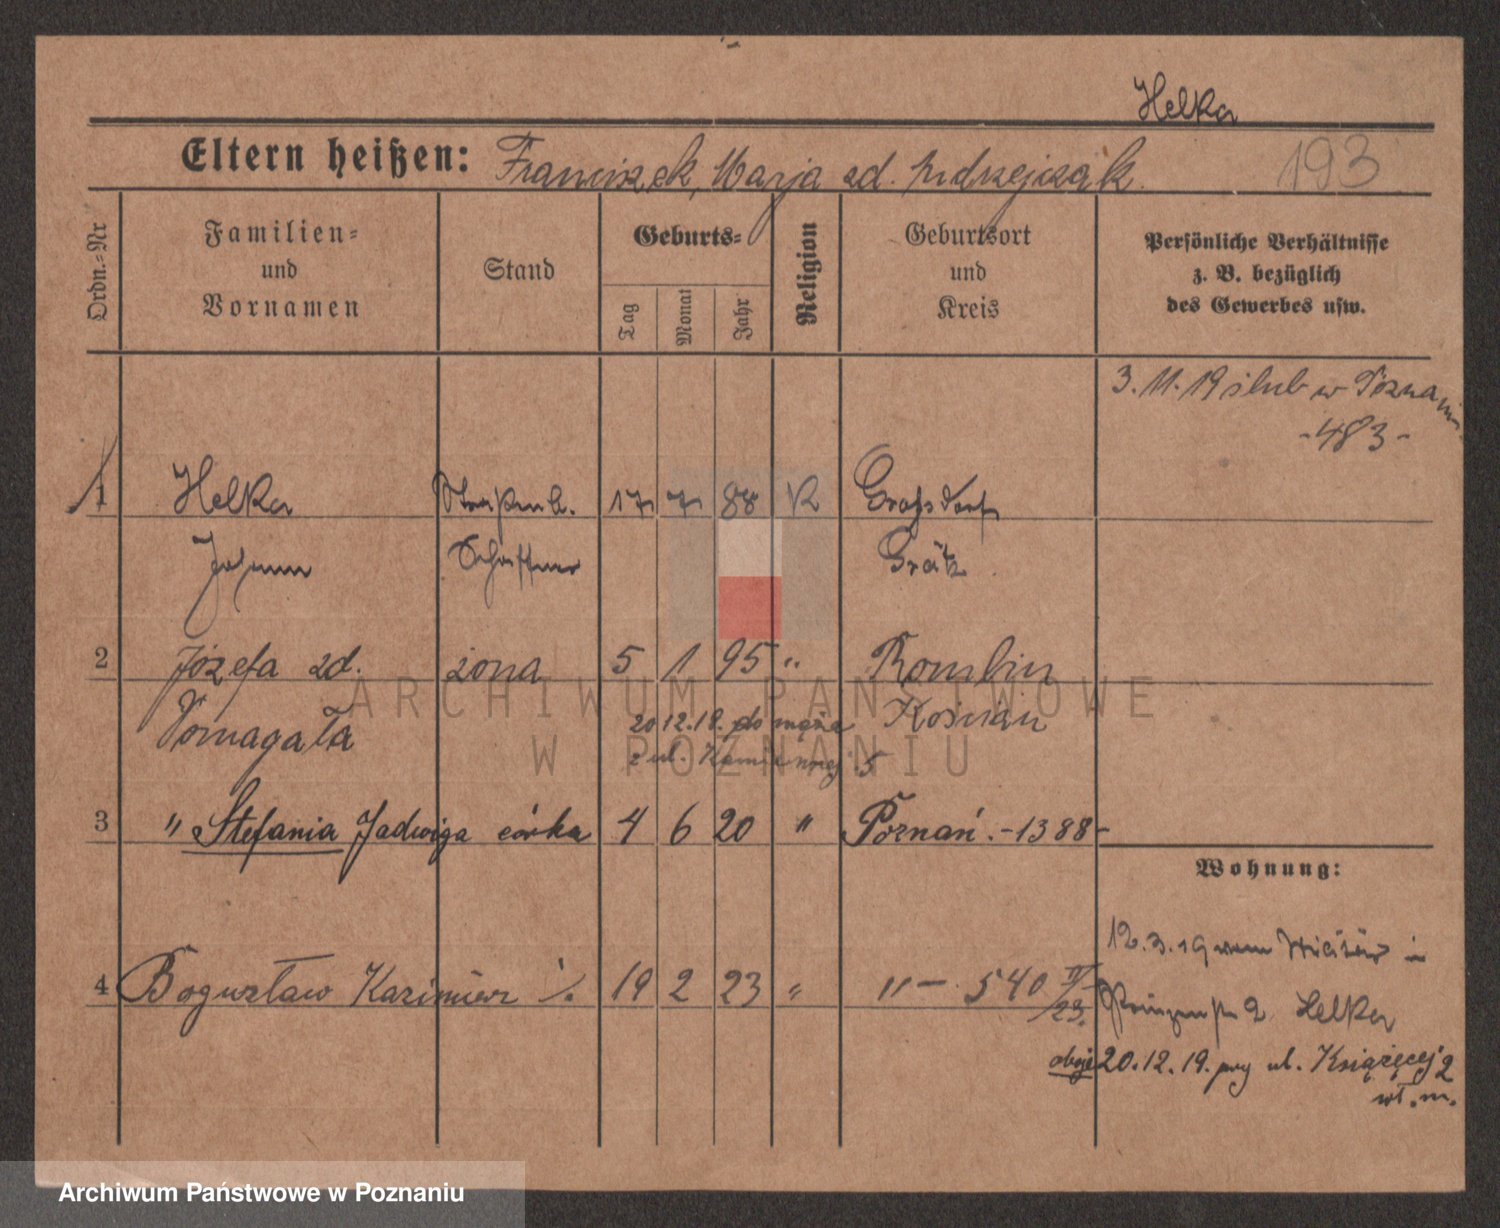 Helka
Eltern heißen: Franciszek, Marja zd. Andrzejczak. 193
Ordn.-Nr
Familien-
und
Vornamen
Stand
Geburts-
Tag
Monat
Jahr
Religion
Geburtsort
und
Kreis
Persönliche Verhältnisse
z. B. bezüglich
des Gewerbes usw.
3. 11. 19 ślub w Poznaniu
-483-
1 Helka Straßenb. 17 7 88 K Großdorf
Johann Schaffner Grätz
2 Józefa zd. żona 5 1 95 " Rombin
Pomagała Kościan
20 12. 19. do męża
z ul. 5
3 " Stefania Jadwiga córka 4 6 20 " Poznań. -1388-
Wohnung:
12. 3. 19 vom Militär in
4 Bogusław Kazimierz 19 2 23 " " — 540
23.
2 Helka
oboje 20. 12. 19. przy ul. Książęcej 2
wł. m.
ARCHIWUM PAŃSTWOWE
W POZNANIU
Archiwum Państwowe w Poznaniu